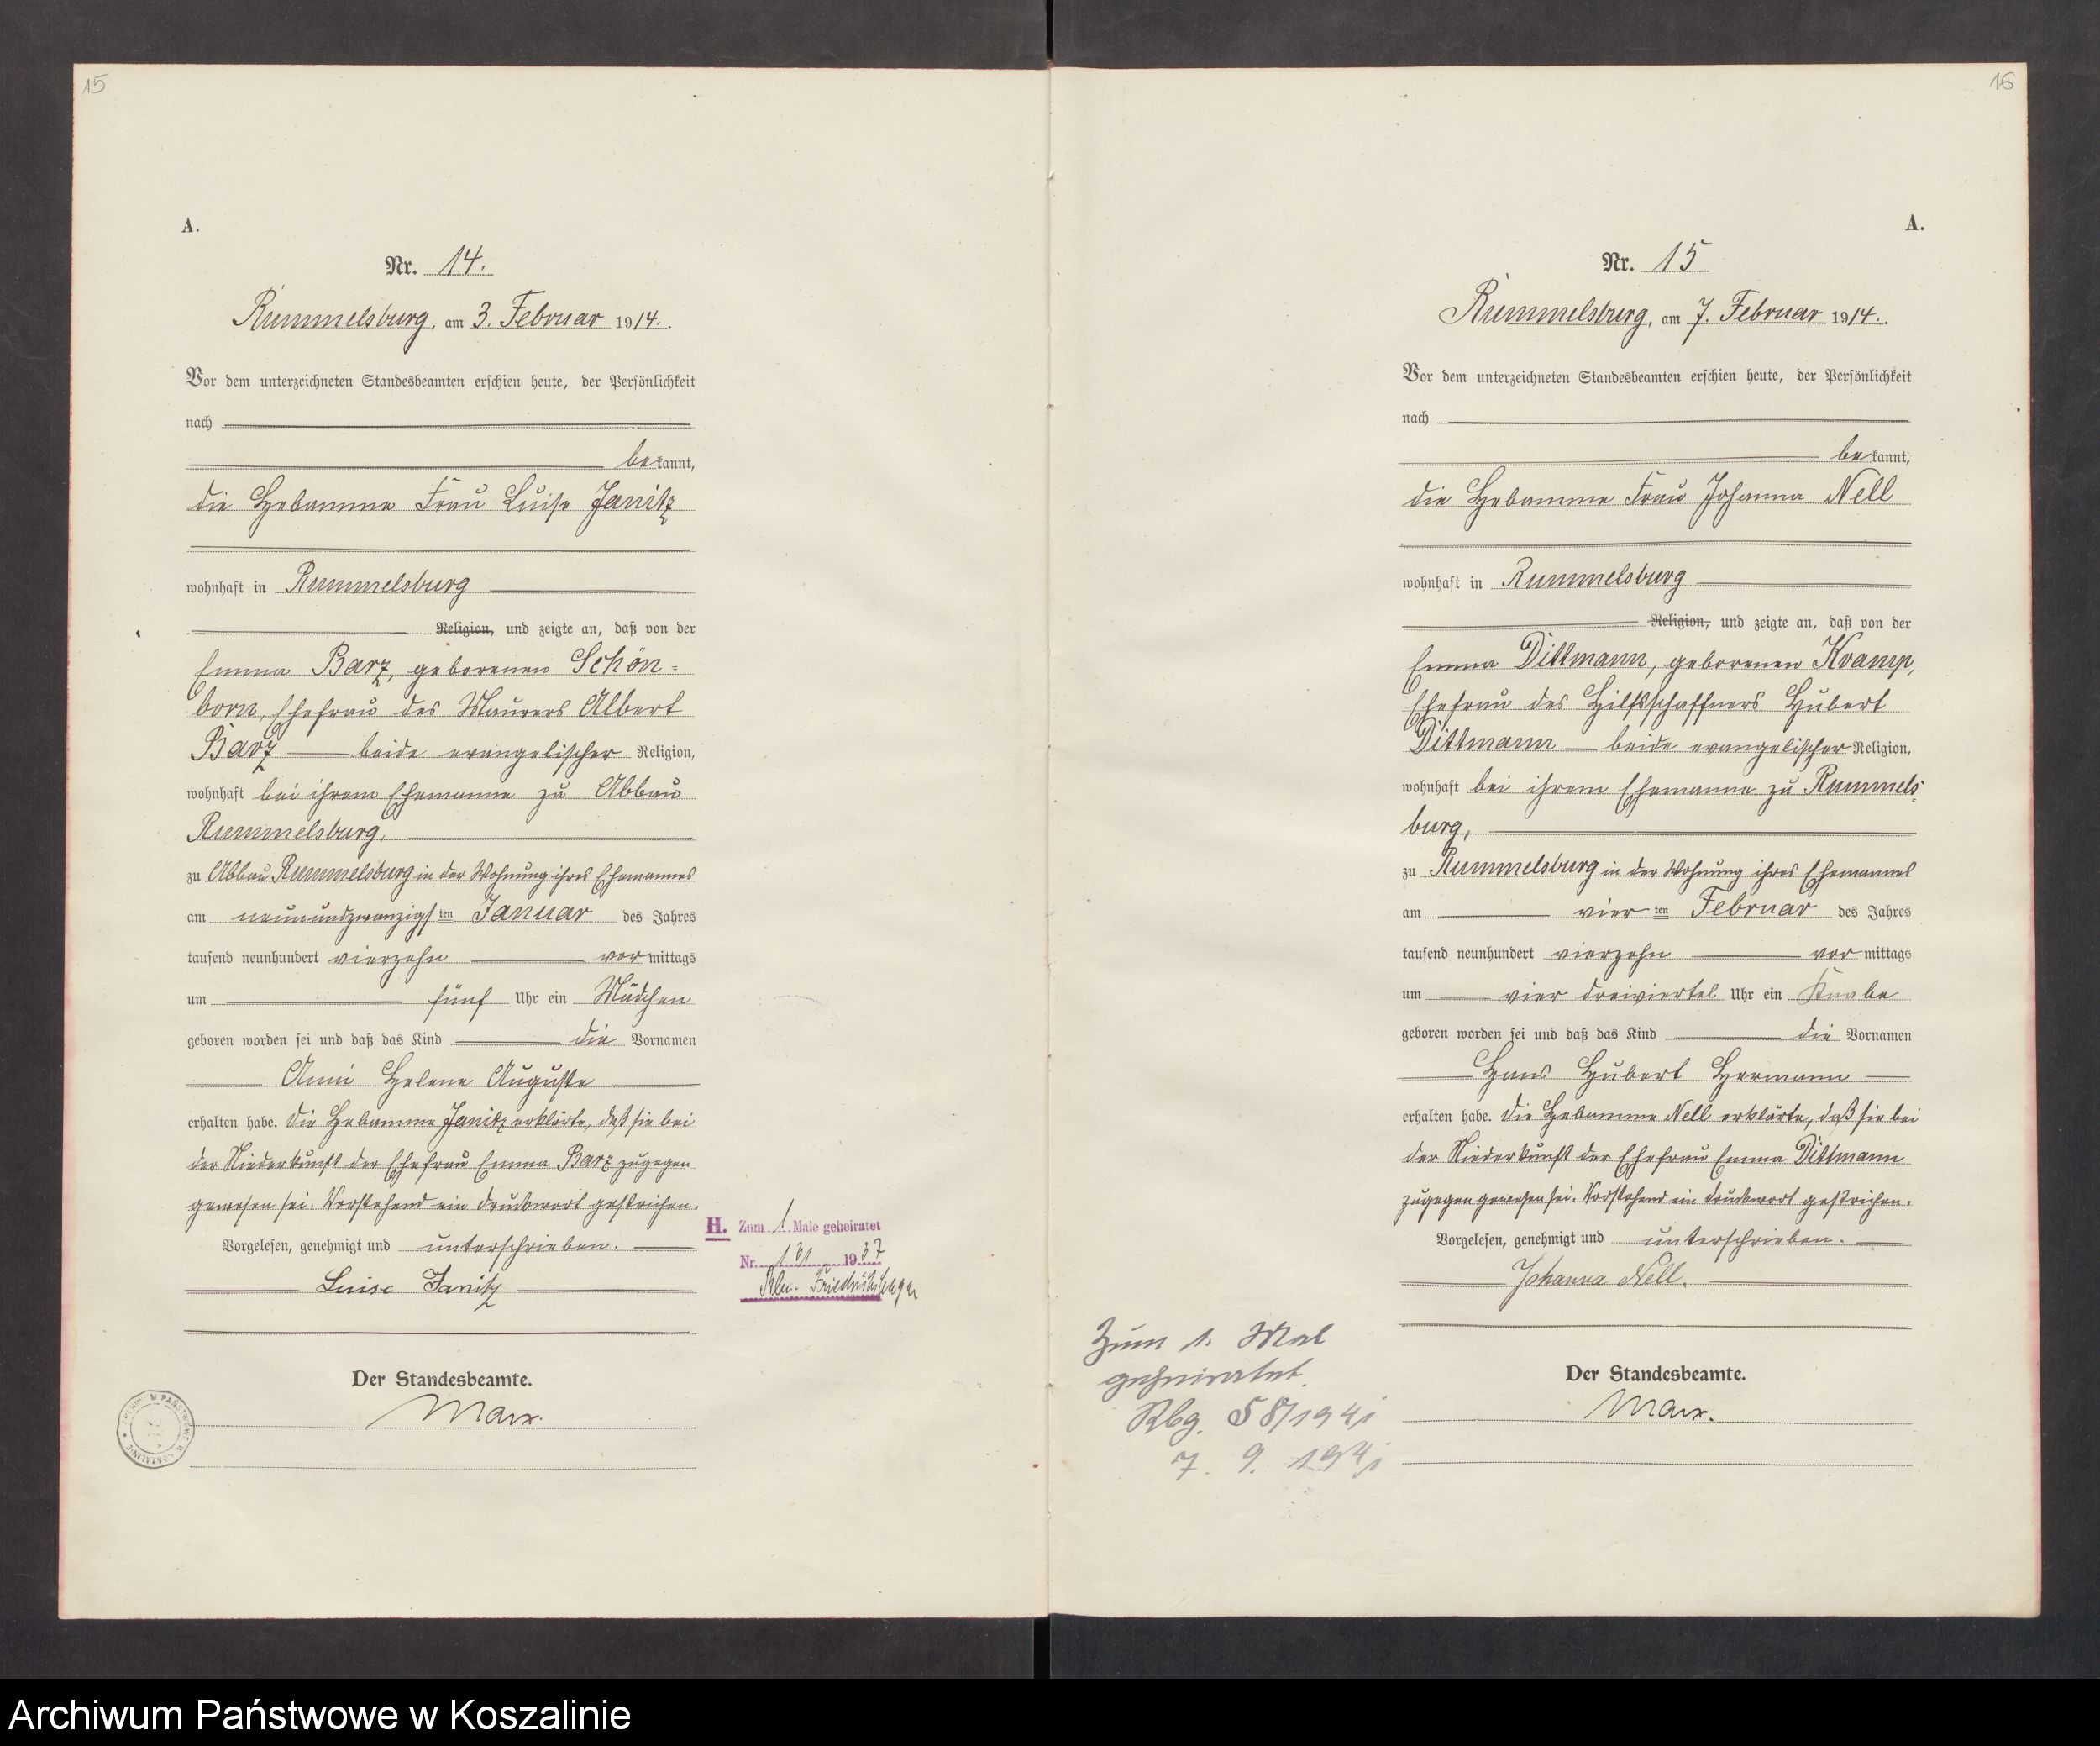 15
A.
Nr. 14.
Rummelsburg, am 3. Februar 1914.
Vor dem unterzeichneten Standesbeamten erschien heute, der Persönlichkeit
nach
bekannt,
die Hebamme Frau Luise Janitz
wohnhaft in Rummelsburg
Religion, und zeigte an, daß von der
Emma Barz, geborenen Schön-
born, Ehefrau des Maurers Albert
Barz beide evangelischer Religion,
wohnhaft bei ihrem Ehemanne zu Abbau
Rummelsburg,
zu Abbau Rummelsburg in der Wohnung ihres Ehemannes
am neunundzwanzigsten Januar des Jahres
tausend neunhundert vierzehn vormittags
um fünf Uhr ein Mädchen
geboren worden sei und daß das Kind die Vornamen
Anni Helene Auguste
erhalten habe. Die Hebamme Janitz erklärte, daß sie bei
der Niederkunft der Ehefrau Emma Barz zugegen
gewesen sei. Vorstehend ein Druckwort gestrichen.
Vorgelesen, genehmigt und unterschrieben.
Luise Janitz
Der Standesbeamte.
Marx.
H. Zum 1. Male geheiratet
Nr. 131 1937
16
A.
Nr. 15
Rummelsburg, am 7. Februar 1914.
Vor dem unterzeichneten Standesbeamten erschien heute, der Persönlichkeit
nach
bekannt,
die Hebamme Frau Johanna Nell
wohnhaft in Rummelsburg
Religion, und zeigte an, daß von der
Emma Dittmann, geborenen Kramp,
Ehefrau des Hilfsschaffners Hubert
Dittmann beide evangelischer Religion,
wohnhaft bei ihrem Ehemanne zu Rummels-
burg,
zu Rummelsburg in der Wohnung ihres Ehemannes
am vierten Februar des Jahres
tausend neunhundert vierzehn vormittags
um vier dreiviertel Uhr ein Knabe
geboren worden sei und daß das Kind die Vornamen
Hans Hubert Hermann
erhalten habe. Die Hebamme Nell erklärte, daß sie bei
der Niederkunft der Ehefrau Emma Dittmann
zugegen gewesen sei. Vorstehend ein Druckwort gestrichen.
Vorgelesen, genehmigt und unterschrieben.
Johanna Nell.
Der Standesbeamte.
Marx.
Zum 1. Mal
geheiratet
Rbg. 58/1941
7. 9. 1941
Archiwum Państwowe w Koszalinie